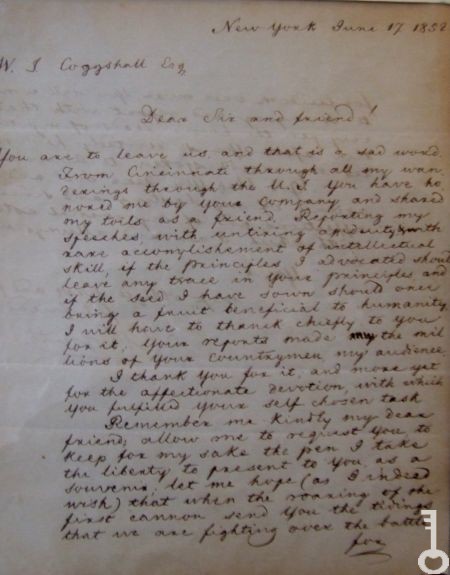 New York June 17 1852
W. T. Coggshall Esq
Dear Sir and friend!
You are to leave us, and that is a sad word.
From Cincinnati through all my wan
derings through the U. S. You have ho
nored me by Your Company and shared
my toils as a friend. Reporting my
speeches, with untiring assiduity with
rare accomplishement of intellectual
skill, if the principles I advocated should
leave any trace in Your principles, and
if the seed I have sown should once
bring a fruit beneficial to humanity,
I will have to thanck chiefly to You
for it. Your reports made the mil
lions of Your Countrymen my audience.
I thank You for it, and more yet
for the affectionate devotion, with which
You fulfilled Your self chosen task
Remember me kindly my dear
friend; allow me to request You to
keep for my sake the pen I take
the liberty to present to You as a
souvenir. let me hope (as I indeed
wish) that when the roaring of the
first cannon send You the tidings
that we are fighting over the battle
for